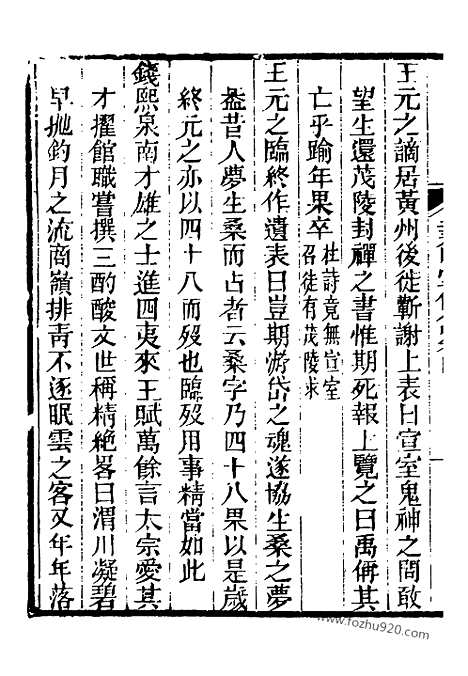 王元之謫居黃州後徙蘄謝上表曰宣室鬼神之問敢
望生還茂陵封禪之書惟期死報上覽之曰禹偁其
亡乎踰年果卒杜詩竟無宣室召徒有茂陵求
王元之臨終作遺表曰豈期游岱之魂遂協生桑之夢
葢昔人夢生桑而占者云桑字乃四十八果以是歲
終元之亦以四十八而歿也臨歿用事精當如此
錢熙泉南才雄之士進四夷來王賦萬餘言太宗愛其
才擢館職嘗撰三酌酸文世稱精絶畧曰渭川凝碧
早抛釣月之流商嶺排靑不逐眠雲之客又年年落
www.fozhu920.com